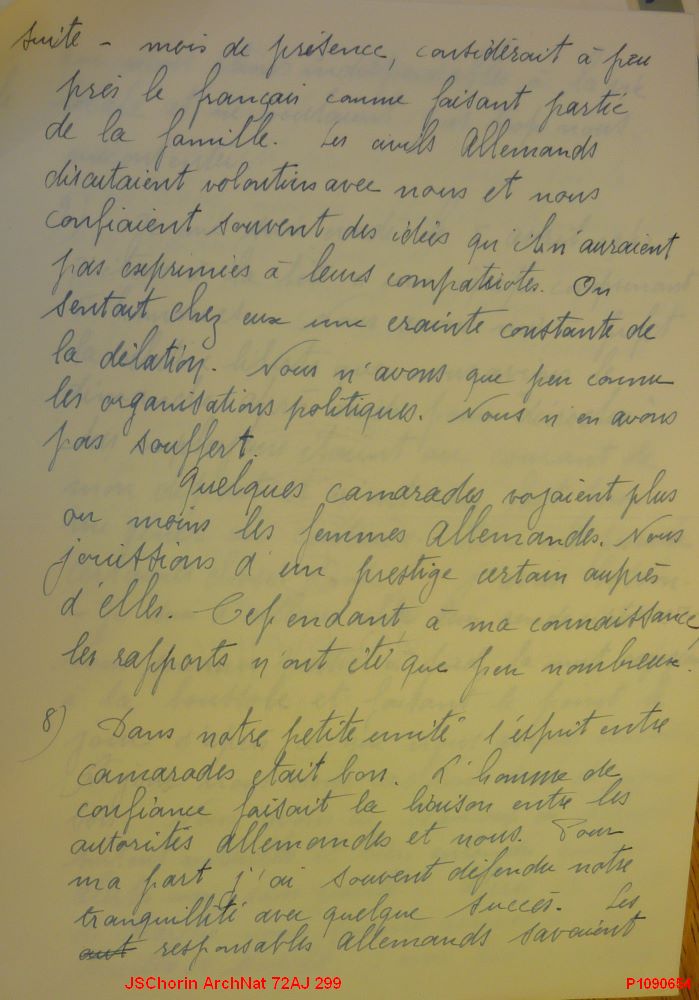 suite - mois de présence, considérait à peu
près le français comme faisant partie
de la famille. Les civils Allemands
discutaient volontiers avec nous et nous
confiaient souvent des idées qu'ils n'auraient
pas exprimées à leurs compatriotes. On
sentait chez eux une crainte constante de
la délation. Nous n'avons que peu connu
les organisations politiques. Nous n'en avons
pas souffert.
Quelques camarades voyaient plus
ou moins les femmes Allemandes. Nous
jouissions d'un prestige certain auprès
d'elles. Cependant à ma connaissance,
les rapports n'ont été que peu nombreux.
8) Dans notre petite unité l'esprit entre
camarades etait bon. L'homme de
confiance faisait la liaison entre les
autorités allemandes et nous. Pour
ma part j'ai souvent défendu notre
tranquillité avec quelque succès. Les
aut responsables Allemands savaient
JSChorin ArchNat 72AJ 299
P1090654